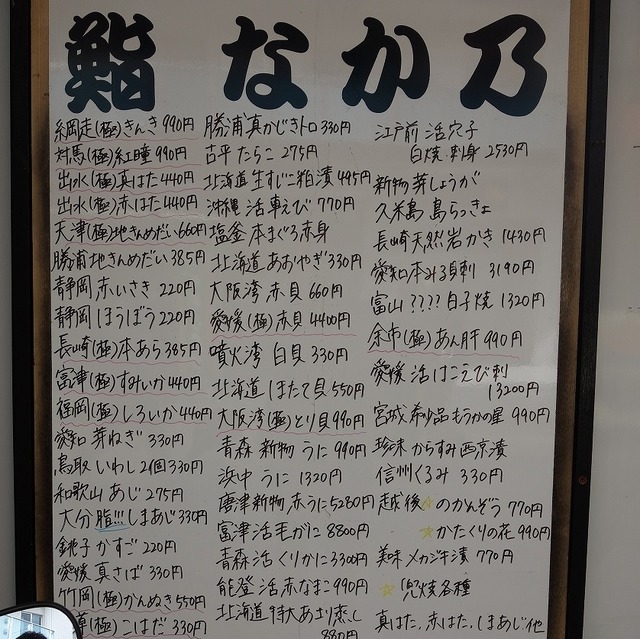 鮨 なか乃
網走(極)きんき 990円
対馬(極)紅瞳 990円
出水(極)真はた 440円
出水(極)赤はた 440円
天津(極)地きんめだい 660円
勝浦 地きんめだい 385円
静岡 赤いさき 220円
静岡 ほうぼう 220円
長崎(極)本あら 385円
富津(極)すみいか 440円
福岡(極)しろいか 440円
愛知 芽ねぎ 330円
鳥取 いわし2個 330円
和歌山 あじ 275円
大分 脂!!! しまあじ 330円
銚子 かすご 220円
愛媛 真さば 330円
竹岡(極)かんぬき 550円
(極)こはだ 330円
勝浦 真かじきトロ 330円
古平 たらこ 275円
北海道 生すじこ粕漬 495円
沖縄 活車えび 770円
塩釜 本まぐろ赤身
北海道 あおやぎ 330円
大阪湾 赤貝 660円
愛媛(極)赤貝 4400円
噴火湾 白貝 330円
北海道 ほたて貝 550円
大阪湾(極)とり貝 990円
青森 新物 うに 990円
浜中 うに 1320円
唐津 新物 赤うに 5280円
富津 活毛がに 8800円
青森 活くりかに 3300円
能登 活赤なまこ 990円
北海道 特大あさり蒸し
880円
江戸前 活穴子
白焼・刺身 2530円
新物 芽しょうが
久米島 島らっきょ
長崎 天然岩かき 1430円
愛知 本みる貝刺 3190円
富山 ???? 白子焼 1320円
余市(極)あん肝 990円
愛媛 活はこえび刺
13200円
宮城 希少品もうかの星 990円
珍味 からすみ西京漬
信州くるみ 330円
越後☆のかんぞう 770円
☆かたくりの花 990円
美味 メカジキ漬 770円
☆兜焼各種
真はた、赤はた、しまあじ他